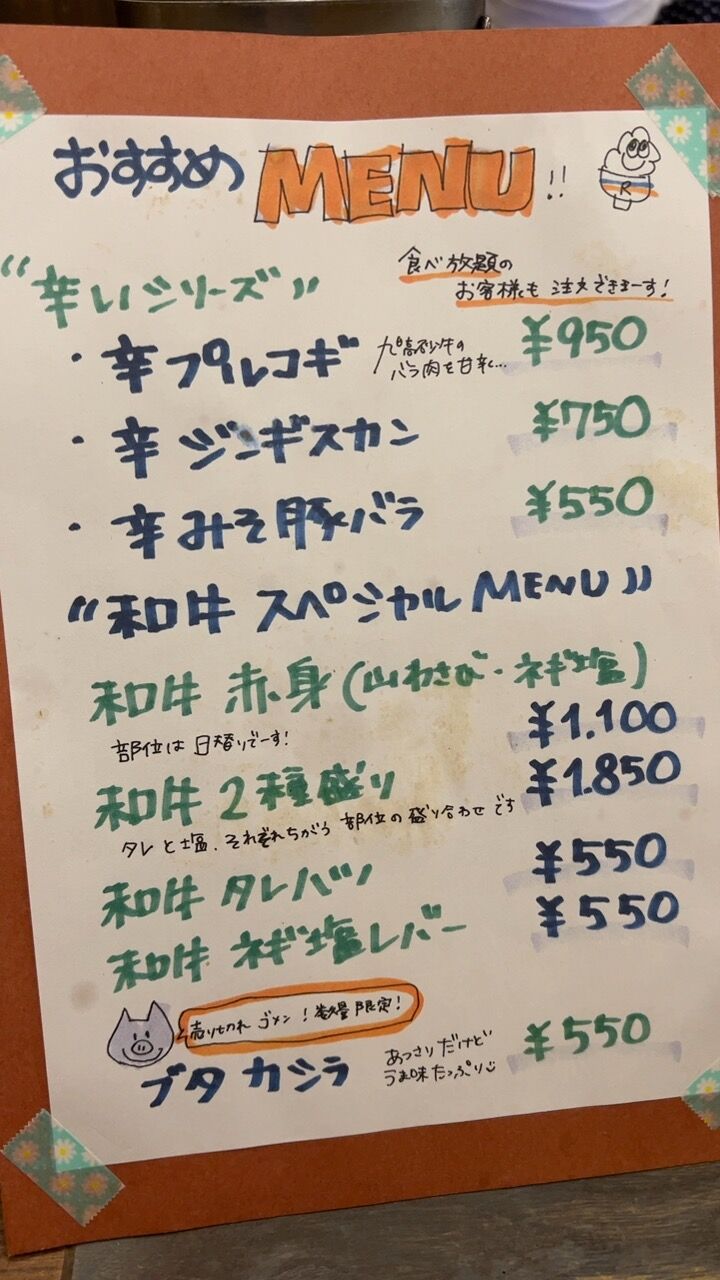 おすすめ MENU!!
R
食べ放題の
お客様も 注文できまーす!
"辛いシリーズ"
・辛プルコギ
バラ肉を甘辛く...
¥950
・辛ジンギスカン ¥750
・辛みそ豚バラ ¥550
"和牛 スペシャル MENU"
和牛 赤身(山わさび・ネギ塩)
¥1.100
部位は日替りでーす!
和牛 2種盛り ¥1.850
タレと塩、それぞれちがう 部位の盛り合わせです
和牛 タレハツ ¥550
和牛 ネギ塩レバー ¥550
売り切れ ゴメン!数量限定!
ブタ カシラ
あっさりだけど
うま味たっぷり
¥550